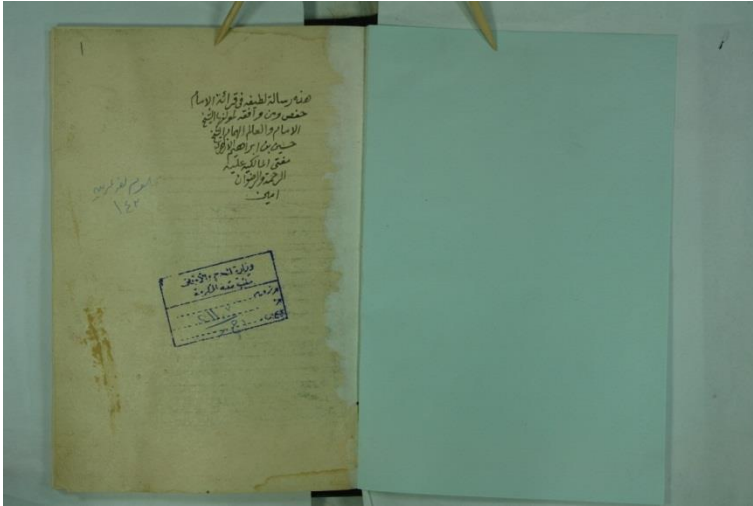 هذه رسالة لطيفه في قرائة الامام
حفص ومن وافقه لمولفها الشيخ
الامام والعالم الهمام الشيخ
حسين بن ابراهيم
مفتي المالكيه عليه
الرحمة والرضوان
امين
١٤٢
وزارة الحج والأوقاف
مكتبة مكة المكرمة
١